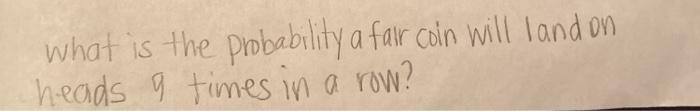 what is the probability a fair coin will land on
heads 9 times in a row?